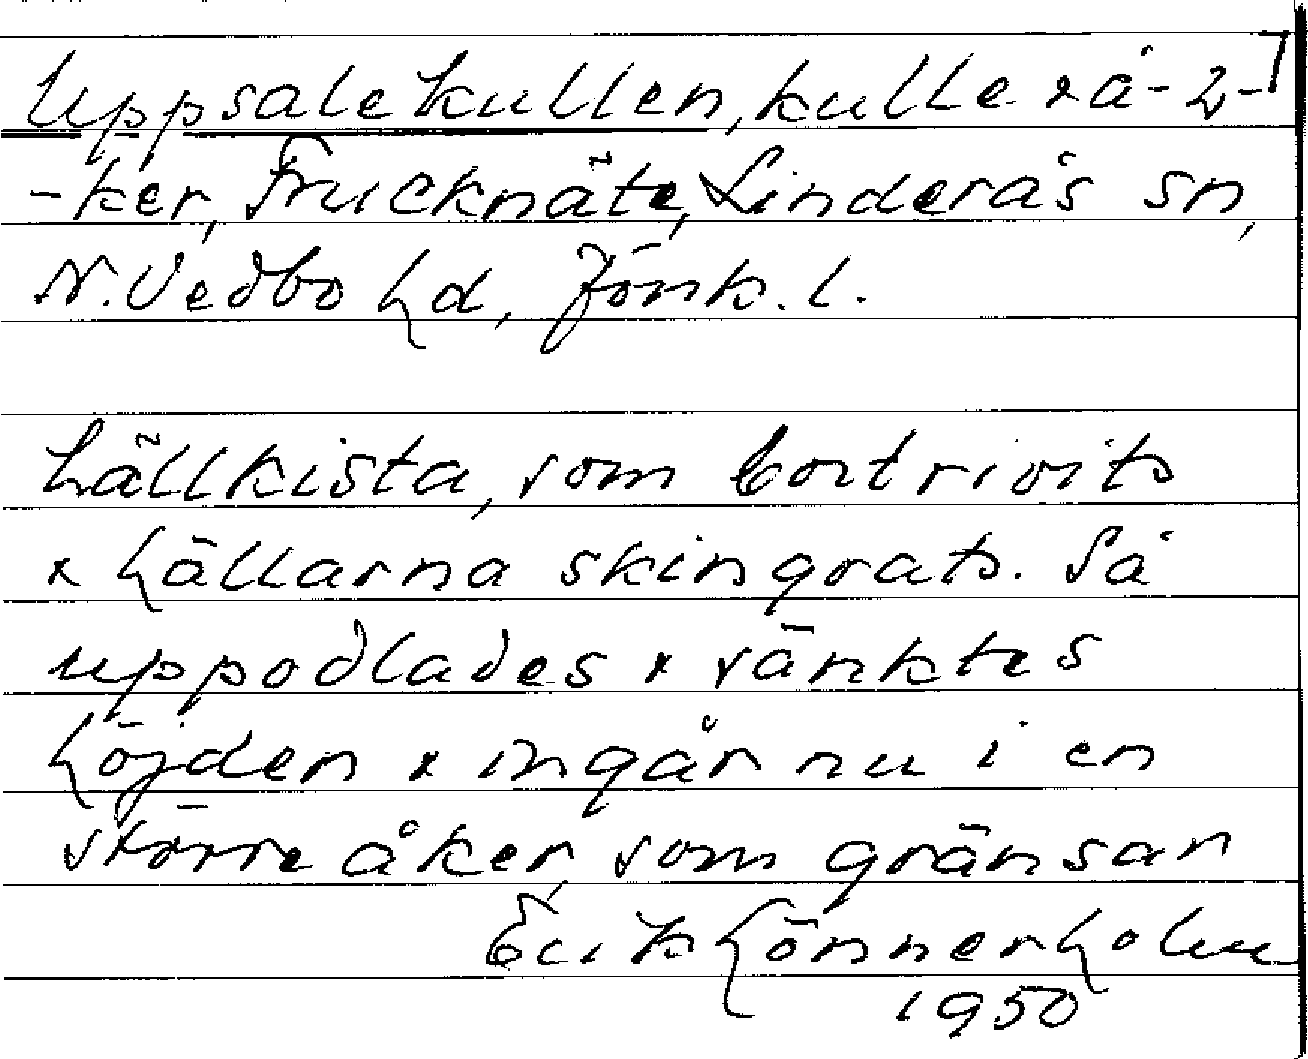 Uppsalekullen, kulle x å- -2-
-ker, Frucknäte, Linderås sn,
N. Vedbo hd, Jönk. l.
hällkista, som bortrivits
x hällarna skingrats. Så
uppodlades x sänktes
höjden x ingår nu i en
större åker, som gränsar
Erik Lönnerholm
1950